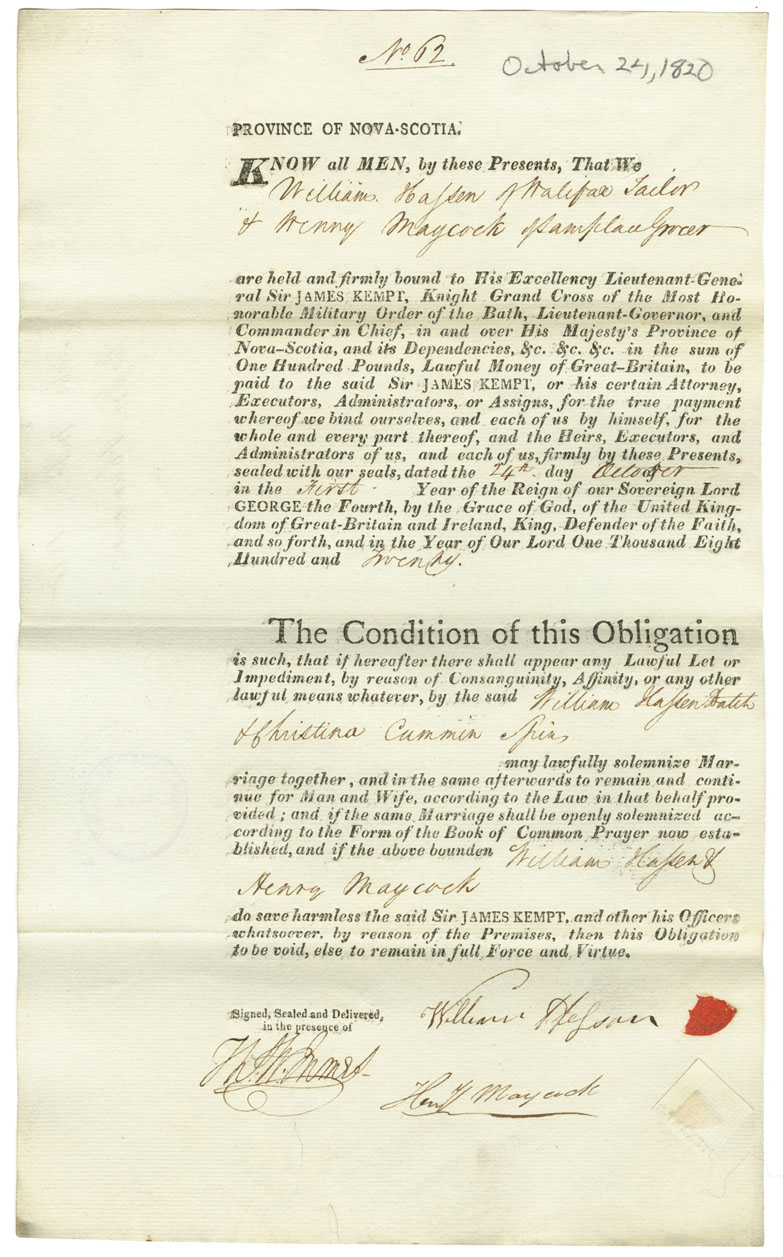 No 62.
October 24, 1820
PROVINCE OF NOVA-SCOTIA.
KNOW all MEN, by these Presents, That We
William Hassen of Halifax Tailor
& Henry Maycock of Sam place Grocer
are held and firmly bound to His Excellency Lieutenant-Gene-
ral Sir JAMES KEMPT, Knight Grand Cross of the Most Ho-
norable Military Order of the Bath, Lieutenant-Governor, and
Commander in Chief, in and over His Majesty's Province of
Nova-Scotia, and its Dependencies, &c. &c. &c. in the sum of
One Hundred Pounds, Lawful Money of Great-Britain, to be
paid to the said Sir JAMES KEMPT, or his certain Attorney,
Executors, Administrators, or Assigns, for the true payment
whereof we bind ourselves, and each of us by himself, for the
whole and every part thereof, and the Heirs, Executors, and
Administrators of us, and each of us, firmly by these Presents,
sealed with our seals, dated the 24th day of October
in the First Year of the Reign of our Sovereign Lord
GEORGE the Fourth, by the Grace of God, of the United King-
dom of Great-Britain and Ireland, King, Defender of the Faith,
and so forth, and in the Year of Our Lord One Thousand Eight
Hundred and Twenty.
The Condition of this Obligation
is such, that if hereafter there shall appear any Lawful Let or
Impediment, by reason of Consanguinity, Affinity, or any other
lawful means whatever, by the said William Hassen Batch
& Christina Cummin Spin
may lawfully solemnize Mar-
riage together, and in the same afterwards to remain and conti-
nue for Man and Wife, according to the Law in that behalf pro-
vided; and if the same Marriage shall be openly solemnized ac-
cording to the Form of the Book of Common Prayer now esta-
blished, and if the above bounden William Hassen &
Henry Maycock
do save harmless the said Sir JAMES KEMPT, and other his Officers
whatsoever, by reason of the Premises, then this Obligation
to be void, else to remain in full Force and Virtue.
Signed, Sealed and Delivered,
in the presence of
William Hesson
Heny Maycock